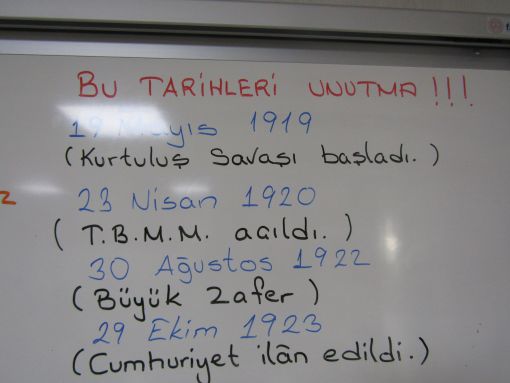 BU TARİHLERİ UNUTMA !!!
19 Mayıs 1919
(Kurtuluş Savaşı başladı.)
23 Nisan 1920
( T.B.M.M. acıldı. )
30 Ağustos 1922
(Büyük Zafer )
29 Ekim 1923
(Cumhuriyet ilân edildi.)